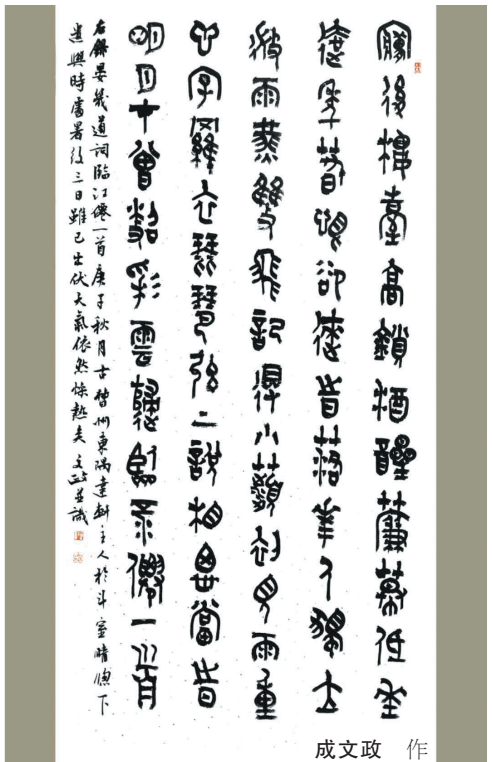 夢後樓臺高鎖酒醒簾幕低垂
去年春恨卻來時落花人獨立
微雨燕雙飛記得小蘋初見兩重
心字羅衣琵琶弦上說相思當時
明月才曾照彩雲歸僊一首
右錄晏幾道詞臨江僊一首庚子秋月古州東隅達軒主人於斗室晴窗下
遣興時處暑後三日雖已出伏天氣依然燥熱矣文政並識
成文政 作